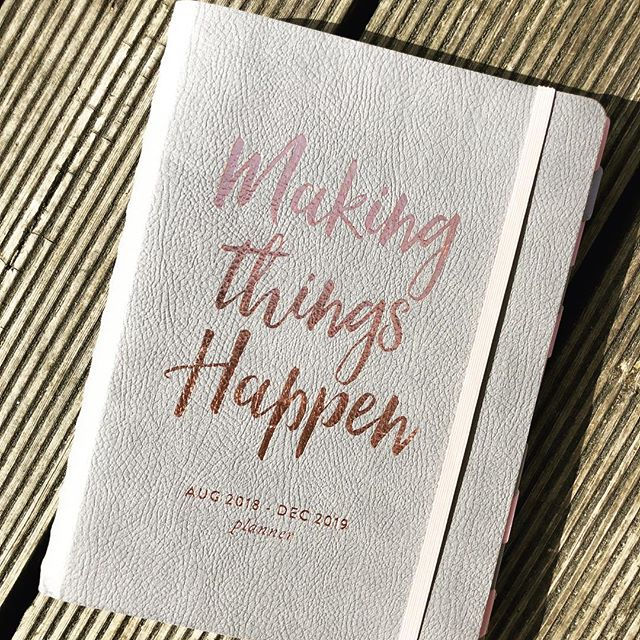 Making
things
Happen
AUG 2018 - DEC 2019
planner